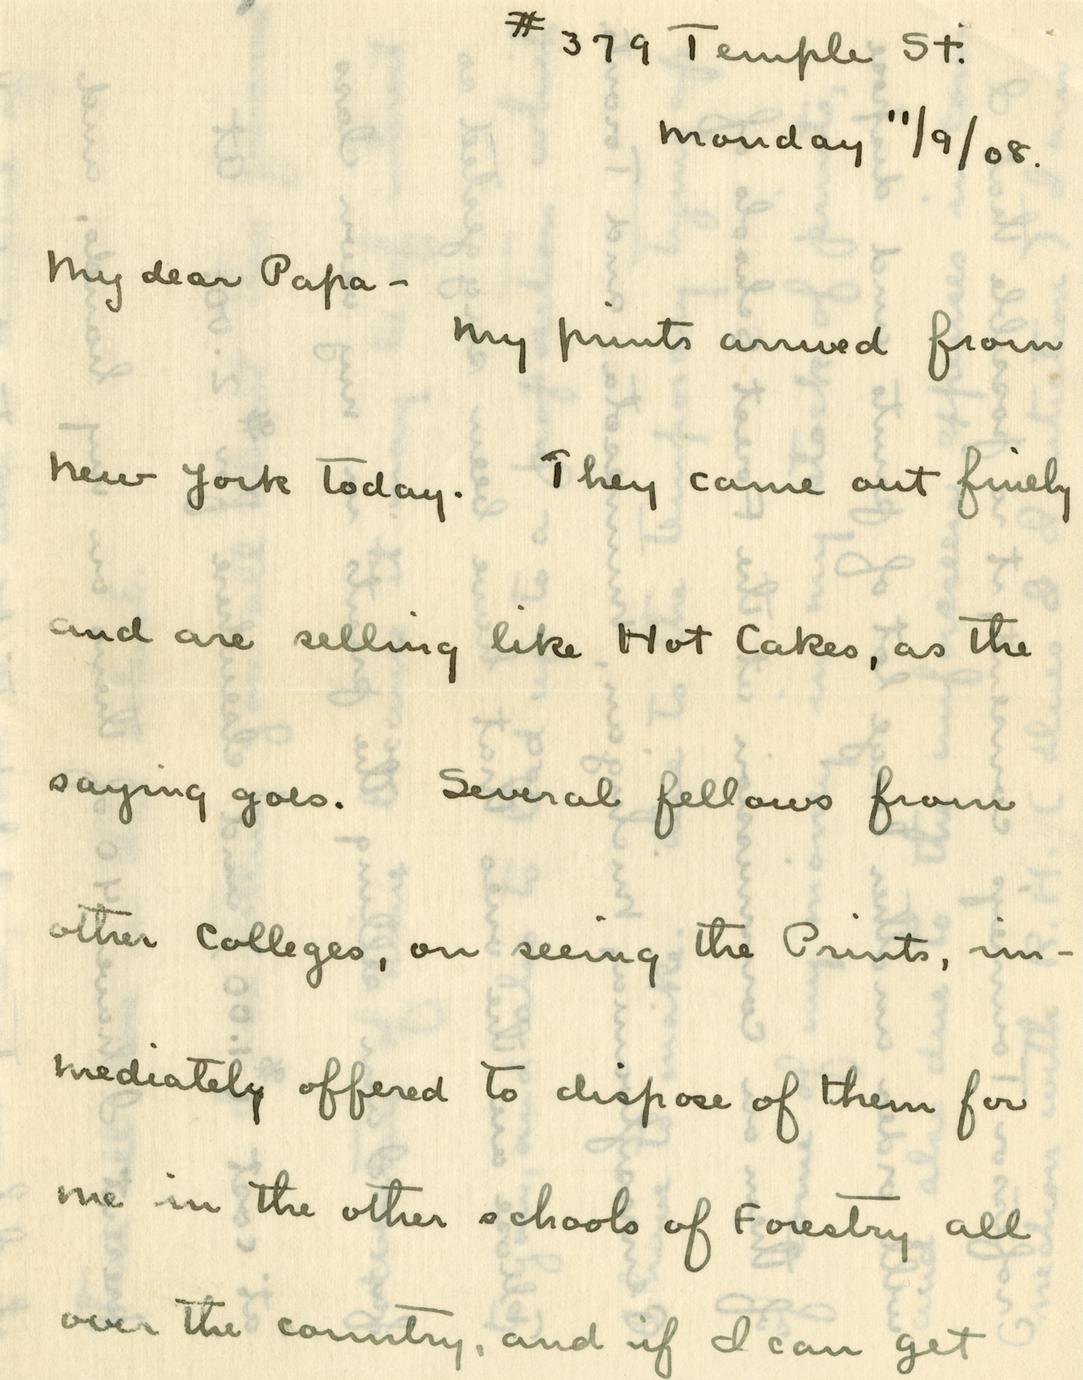 # 379 Temple St.
Monday 11/9/08.
My dear Papa -
My prints arrived from
New York today. They came out finely
and are selling like Hot Cakes, as the
saying goes. Several fellows from
other Colleges, on seeing the Prints, im-
mediately offered to dispose of them for
me in the other schools of Forestry all
over the country, and if I can get